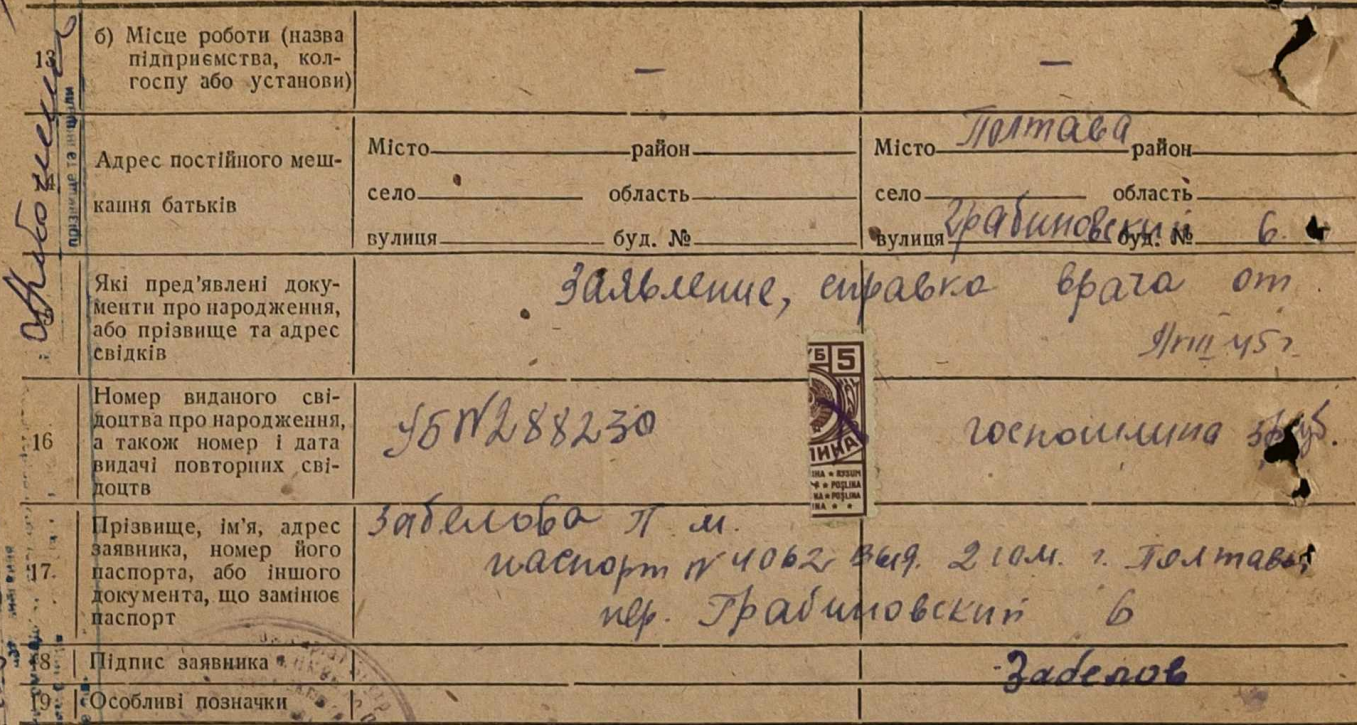 13
б) Місце роботи (назва
підприємства, кол-
госпу або установи)
—
—
Адрес постійного меш-
кання батьків
Місто район
село область
вулиця буд. №
Місто Полтава район
село область
вулиця Грабиновский буд. № 6.
Які пред'явлені доку-
менти про народження,
або прізвище та адрес
свідків
Заявление, справка врача от
45 г.
16
Номер виданого сві-
доцтва про народження,
а також номер і дата
видачі повторних сві-
доцтв
УБ N288230
госпошлина
УБ 5
ЛИНА
17.
Прізвище, ім'я, адрес
заявника, номер його
паспорта, або іншого
документа, що замінює
паспорт
Забелова П м.
паспорт N 4062 выд. 2 г. Полтавы
пер. Грабиновский 6
18
Підпис заявника
Забелов
19
Особливі позначки
прізвище та ініціали